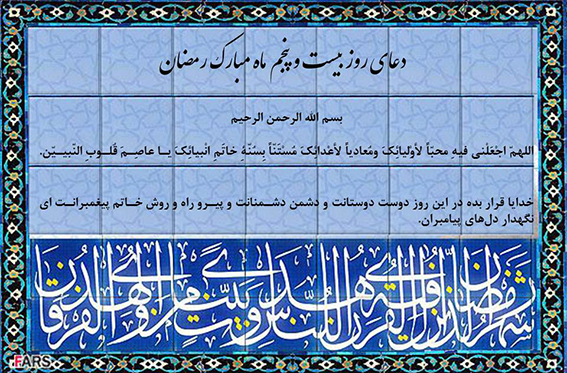 دعای روز بیست و پنجم ماه مبارک رمضان
بسم الله الرحمن الرحیم
اللهمّ اجْعَلْنی فیهِ محبّاً لأوْلیائِکَ ومُعادیاً لأعْدائِکَ مُسْتَنّاً بِسُنّةِ خاتَمِ انْبیائِکَ یـا عـاصِـمَ قُـلـوبِ النّبیـیـّن.
خدایا قرار بده در این روز دوست دوستانت و دشمن دشـمـنانت و پیـرو راه و روش خـاتـم پیغمبرانـت ای
نگهدار دل‌های پیامبران.
شهر رمضان الذی انزل فیه القرآن هدی للناس و بینت من الهدی و الفرقان
FARS